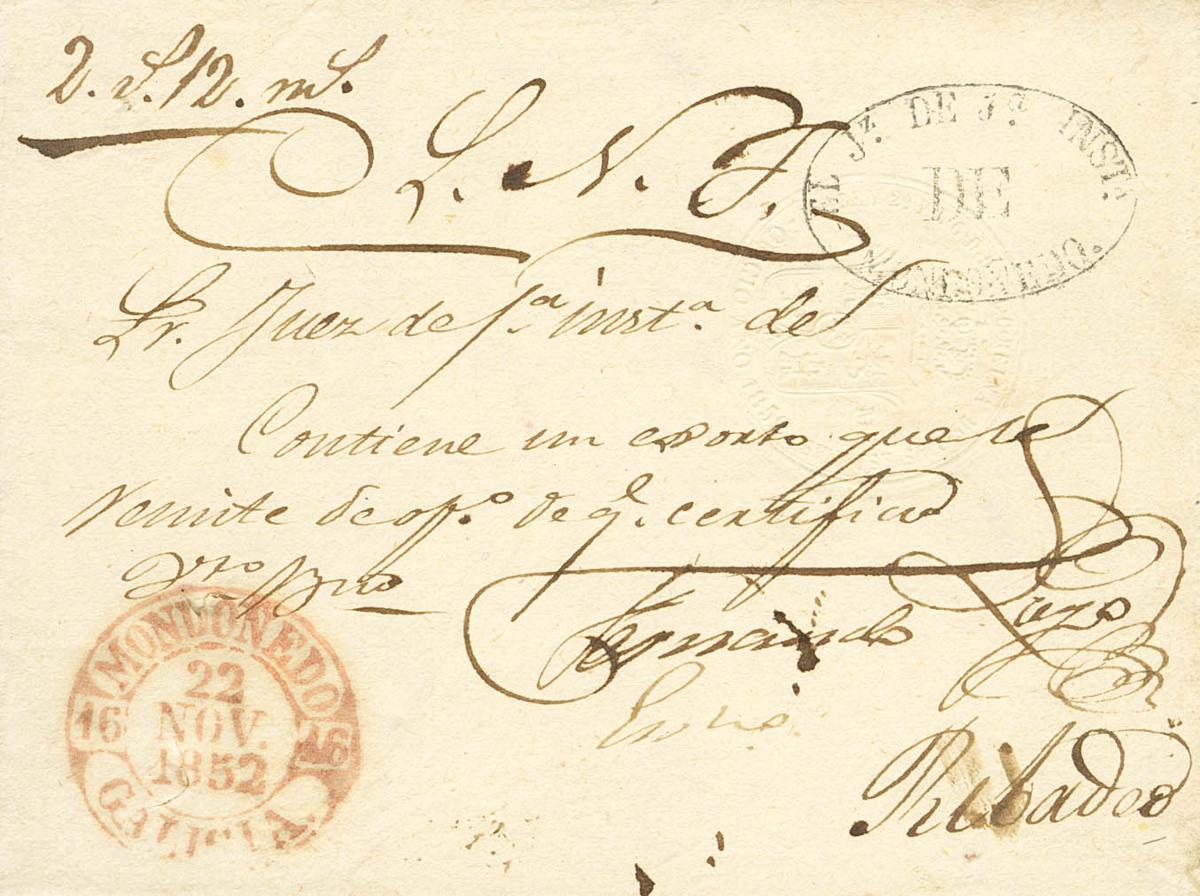 2. rS. 12. mS.
S. N. F.
EL Jz. DE 1ª. INSTª.
DE
MONDOÑEDO.
Sr. Juez de 1ª instª. de
Contiene un exorto que se
remite de ofº. de q. certifico
Fernando Lugo
MONDOÑEDO
16 16
22
NOV.
1852
GALICIA.
Ribadeo